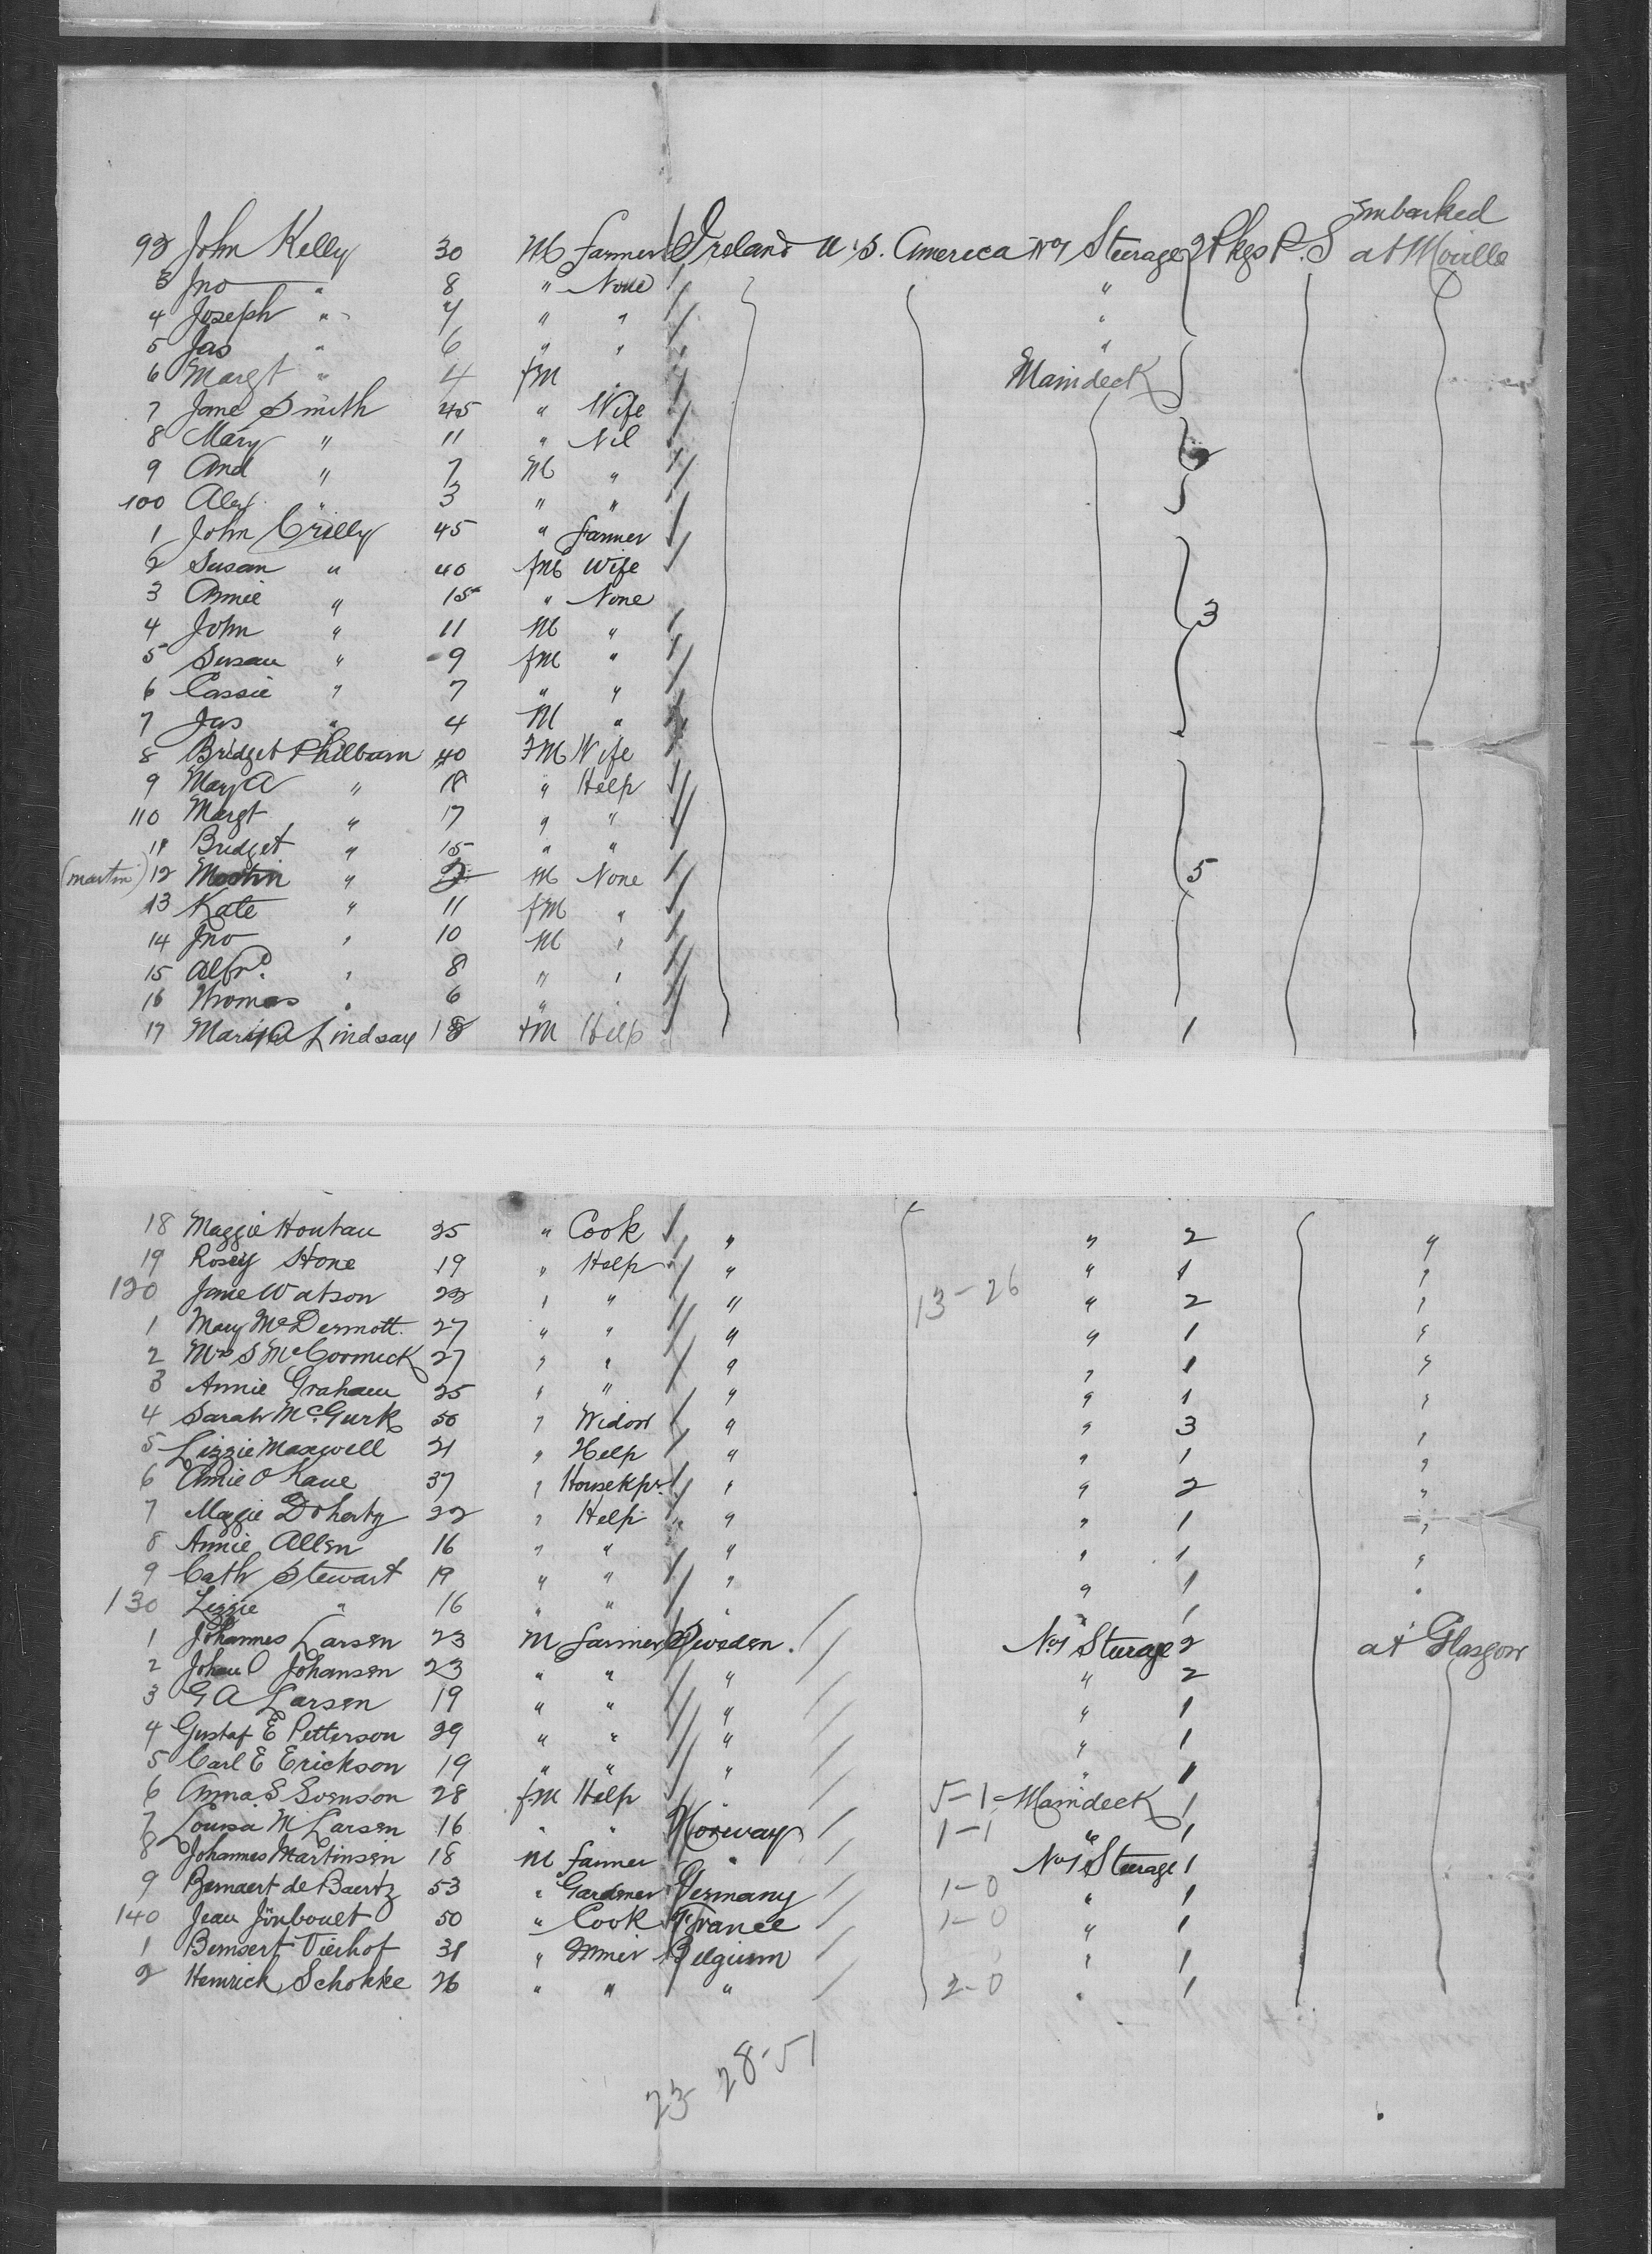 Embarked
92 John Kelly 30 M farmer Ireland U.S. America No 1 Steerage 2 Pkgs P.S at Moville
3 Jno " 8 " None "
4 Joseph " 7 " " "
5 Jas " 6 " " "
6 Margt " 4 fM " Maindeck
7 Jane Smith 45 " Wife
8 Mary " 11 " Nil 2
9 And " 7 M "
100 Alex " 3 " "
1 John Crilly 45 " farmer
2 Susan " 40 fM Wife
3 Annie " 15 " None 3
4 John " 11 M "
5 Susan " 9 fM "
6 Cassie " 7 " "
7 Jas " 4 M "
8 Bridget Philbarn 40 FM Wife
9 May A " 18 " Help
110 Margt " 17 " "
11 Bridget " 15 " "
(martin) 12 Martin " M None 5
13 Kate " 11 fM "
14 Jno " 10 M "
15 Alfrd. " 8 " "
16 Thomas " 6 " "
17 Mary A Lindsay 18 FM Help 1
18 Maggie Houtau 25 " Cook " " 2 "
19 Rosey Stone 19 " Help " " 1 "
120 Jane Watson 22 " " " 13-26 " 2 "
1 Mary McDermott. 27 " " " " 1 "
2 Mrs S McCormick 27 " " " " 1 "
3 Annie Graham 25 " " " " 1 "
4 Sarah McGurk 50 " Widow " " 3 "
5 Lizzie Maxwell 21 " Help " " 1 "
6 Annie O Kane 37 " Housekpr. " " 2 "
7 Maggie Doherty 22 " Help " " 1 "
8 Annie Allen 16 " " " " 1 "
9 Cath Stewart 19 " " " " 1 "
130 Lizzie " 16 " " " " 1
1 Johannes Larsen 23 M farmer Sweden. No 1 Steerage 2 at Glasgow
2 Johan O Johansen 23 " " " " 2
3 G A Larsen 19 " " " " 1
4 Gustaf E Petterson 29 " " " " 1
5 Carl E Erickson 19 " " " " 1
6 Anna S Svenson 28 fM Help " 5-1- Maindeck 1
7 Lousa M Larsen 16 " " Norway 1-1 " 1
8 Johannes Martinsen 18 M farmer " No 1 Steerage 1
9 Bernaert de Baertz 53 " Gardener Germany 1-0 " 1
140 Jean Jonbouet 50 " Cook France 1-0 " 1
1 Bernsert Vierhof 31 " Miner Belgium " 1
2 Heinrich Schokke 26 " " " 2-0 " 1
23 28-51